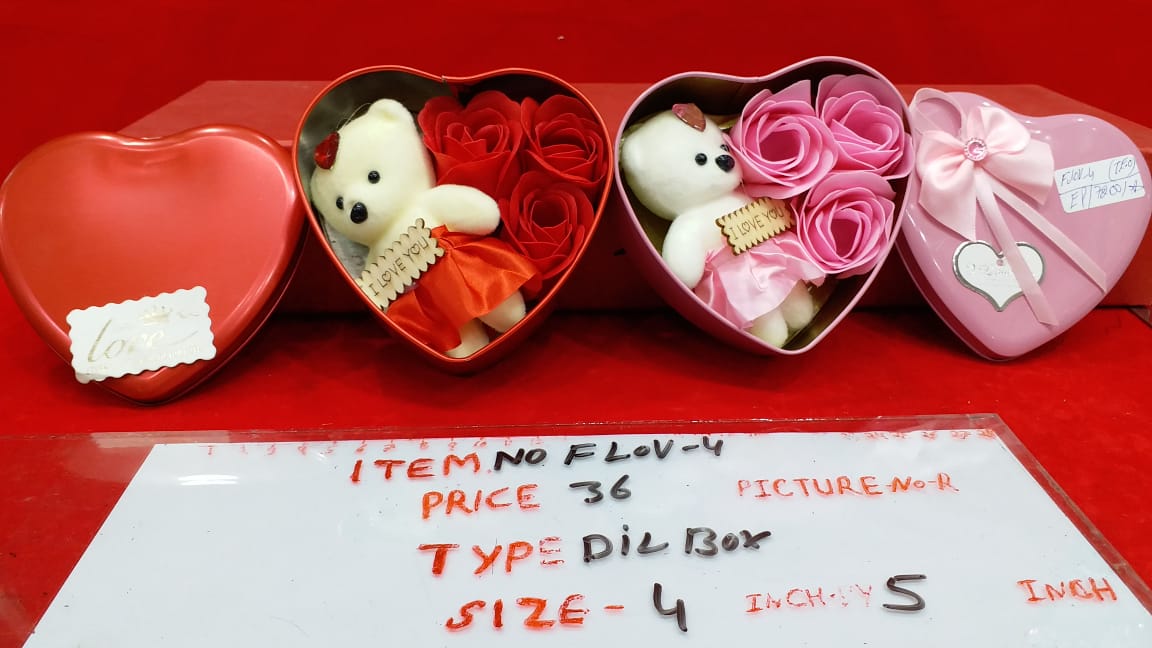 Love
I LOVE YOU
I LOVE YOU
FLOV-4 (TEO)
ITEM NO FLOV-4
PRICE 36 PICTURE-NO-R
TYPE DIL BOX
SIZE- 4 INCH-BY 5 INCH